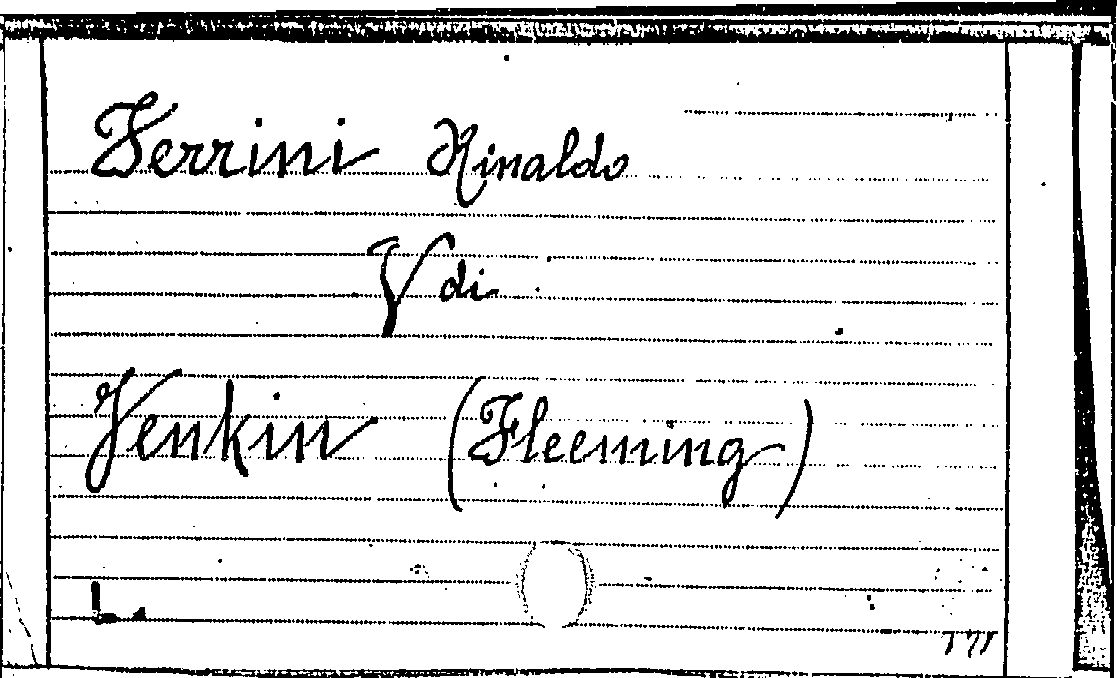 Ferrini Rinaldo
V di
Jenkin (Fleeming)
L.